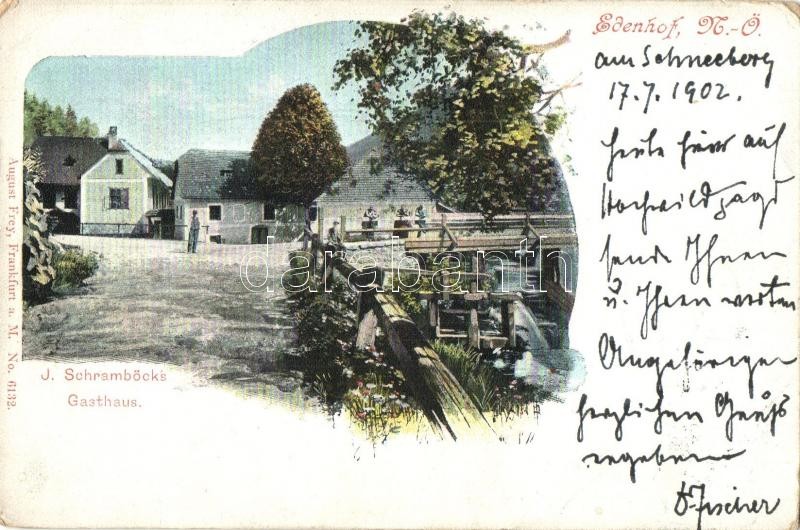 Edenhof, N.-Ö.
am Schneeberg
17.7.1902.
heute hier auf
Hochwildjagd
sende Ihnen
u. Ihren werten
Angehörigen
herzlichen Gruß
ergebenst
Fischer
J. Schramböck's
Gasthaus.
August Frey, Frankfurt a. M. No. 6132.
darabanth